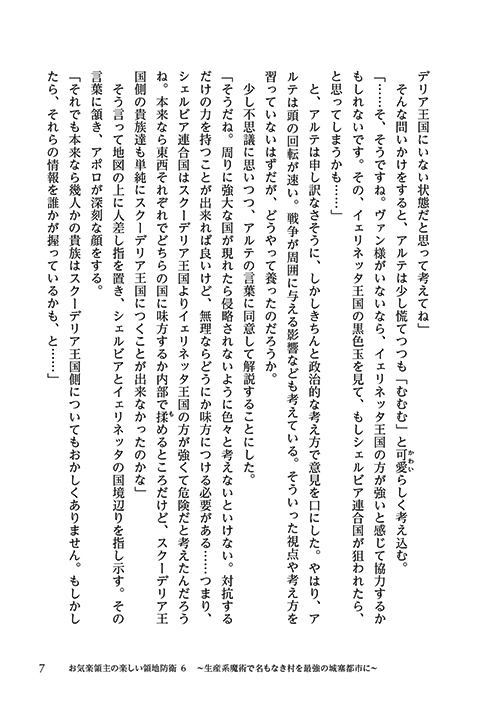 デリア王国にいない状態だと思って考えてね」
　そんな問いかけをすると、アルテは少し慌てつつも「むむむ」と可愛らしく考え込む。
かわい
「……そ、そうですね。ヴァン様がいないなら、イェリネッタ王国の方が強いと感じて協力するか
もしれないです。その、イェリネッタ王国の黒色玉を見て、もしシェルビア連合国が狙われたら、
と思ってしまうかも……」
　と、アルテは申し訳なさそうに、しかしきちんと政治的な考え方で意見を口にした。やはり、ア
ルテは頭の回転が速い。戦争が周囲に与える影響なども考えている。そういった視点や考え方を
習っていないはずだが、どうやって養ったのだろうか。
　少し不思議に思いつつ、アルテの言葉に同意して解説することにした。
「そうだね。周りに強大な国が現れたら侵略されないように色々と考えないといけない。対抗する
だけの力を持つことが出来れば良いけど、無理ならどうにか味方につける必要がある……つまり、
シェルビア連合国はスクーデリア王国よりイェリネッタ王国の方が強くて危険だと考えたんだろう
ね。本来なら東西それぞれでどちらの国に味方するか内部で揉めるところだけど、スクーデリア王
も
国側の貴族達も単純にスクーデリア王国につくことが出来なかったのかな」
　そう言って地図の上に人差し指を置き、シェルビアとイェリネッタの国境辺りを指し示す。その
言葉に頷き、アポロが深刻な顔をする。
「それでも本来なら幾人かの貴族はスクーデリア王国側についてもおかしくありません。もしかし
たら、それらの情報を誰かが握っているかも、と……」
7　お気楽領主の楽しい領地防衛 6　～生産系魔術で名もなき村を最強の城塞都市に～